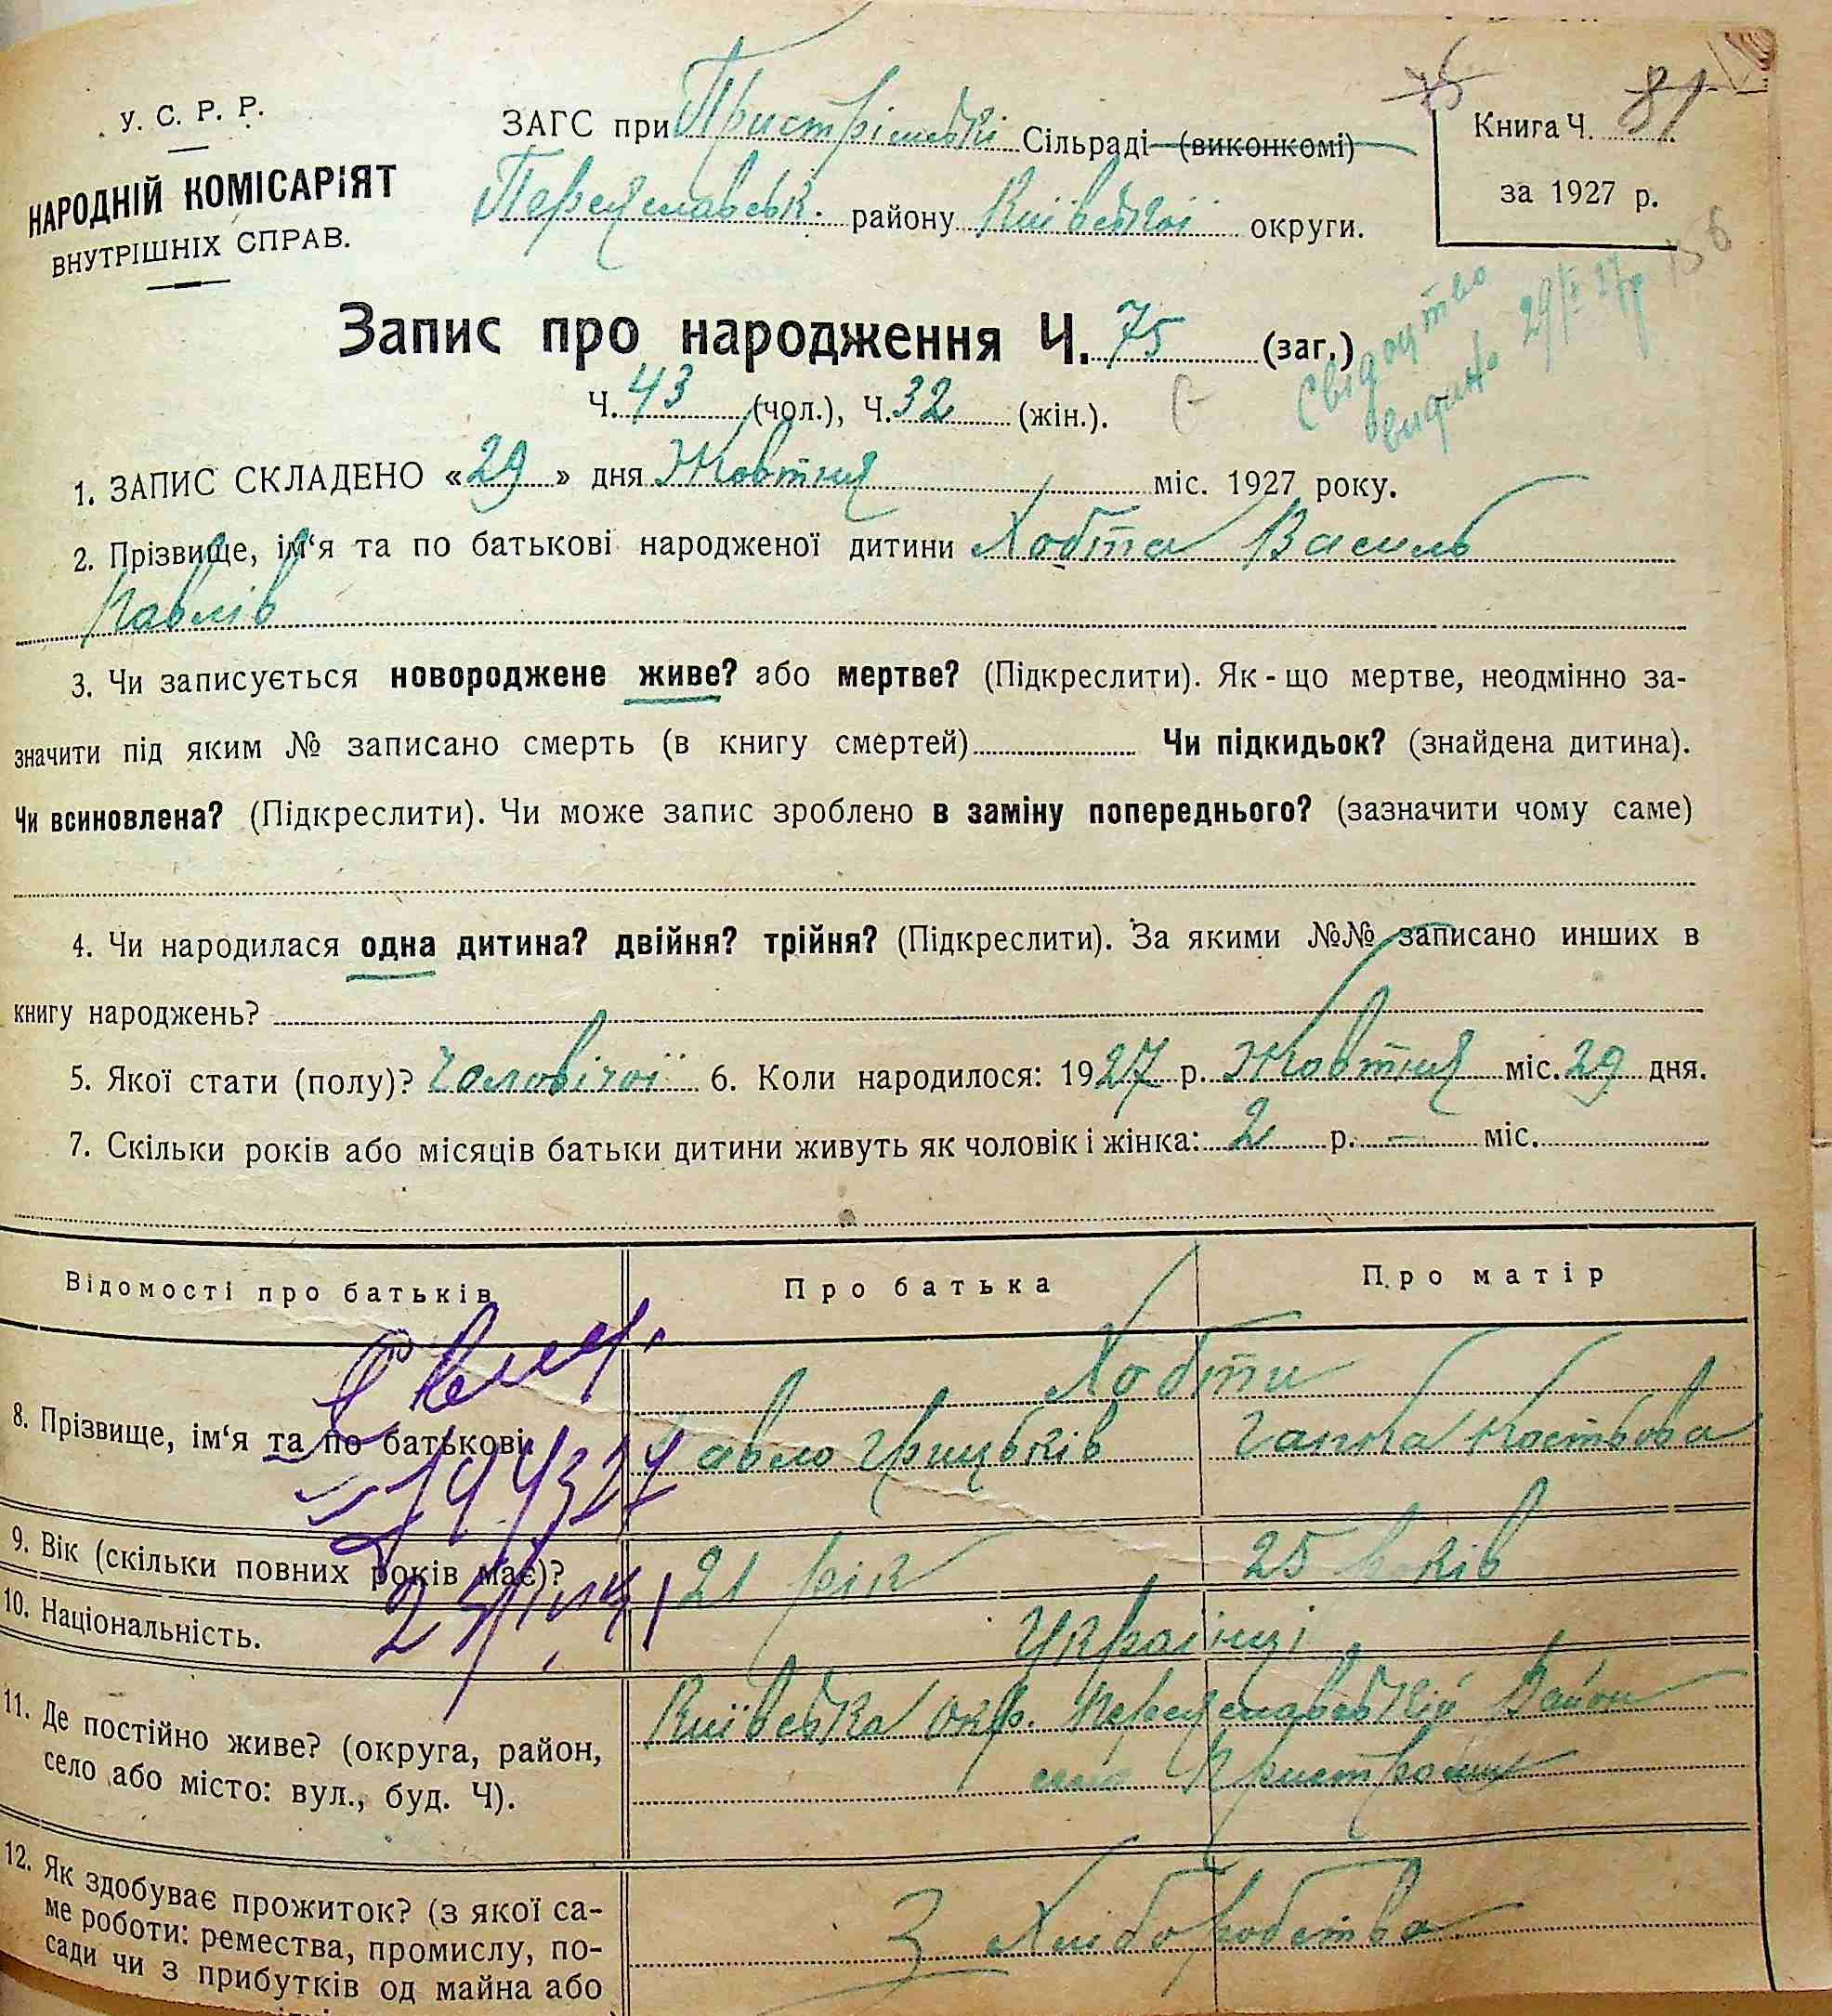 У. С. Р. Р.
НАРОДНІЙ КОМІСАРІЯТ
ВНУТРІШНІХ СПРАВ.
ЗАГС при Пристрімські Сільраді (виконкомі)
Переяславськ. району Київської округи.
75
Книга Ч. 81
за 1927 р.
Запис про народження Ч. 75 (заг.)
Ч. 43 (чол.), Ч. 32 (жін.).
Свідоцтво
видано 29/X 27р
1. ЗАПИС СКЛАДЕНО «29» дня Жовтня міс. 1927 року.
2. Прізвище, ім‘я та по батькові народженої дитини Хобта Василь
Павлів
3. Чи записується новороджене живе? або мертве? (Підкреслити). Як-що мертве, неодмінно за-
значити під яким № записано смерть (в книгу смертей) Чи підкидьок? (знайдена дитина).
Чи всиновлена? (Підкреслити). Чи може запис зроблено в заміну попереднього? (зазначити чому саме)
4. Чи народилася одна дитина? двійня? трійня? (Підкреслити). За якими №№ записано инших в
книгу народжень?
5. Якої стати (полу)? Чоловічої 6. Коли народилося: 1927 р. Жовтня міс. 29 дня.
7. Скільки років або місяців батьки дитини живуть як чоловік і жінка: 2 р. — міс.
Відомості про батьків Про батька Про матір
8. Прізвище, ім‘я та по батькові Хобти
Павло Грицьків Ганка Костьова
9. Вік (скільки повних років має)? 21 рік 25 років
10. Національність. Українці
11. Де постійно живе? (округа, район,
село або місто: вул., буд. Ч).
Київська окр. Переяславський Район
село Пристроми
12. Як здобуває прожиток? (з якої са-
ме роботи: ремества, промислу, по-
сади чи з прибутків од майна або
З Хліборобства